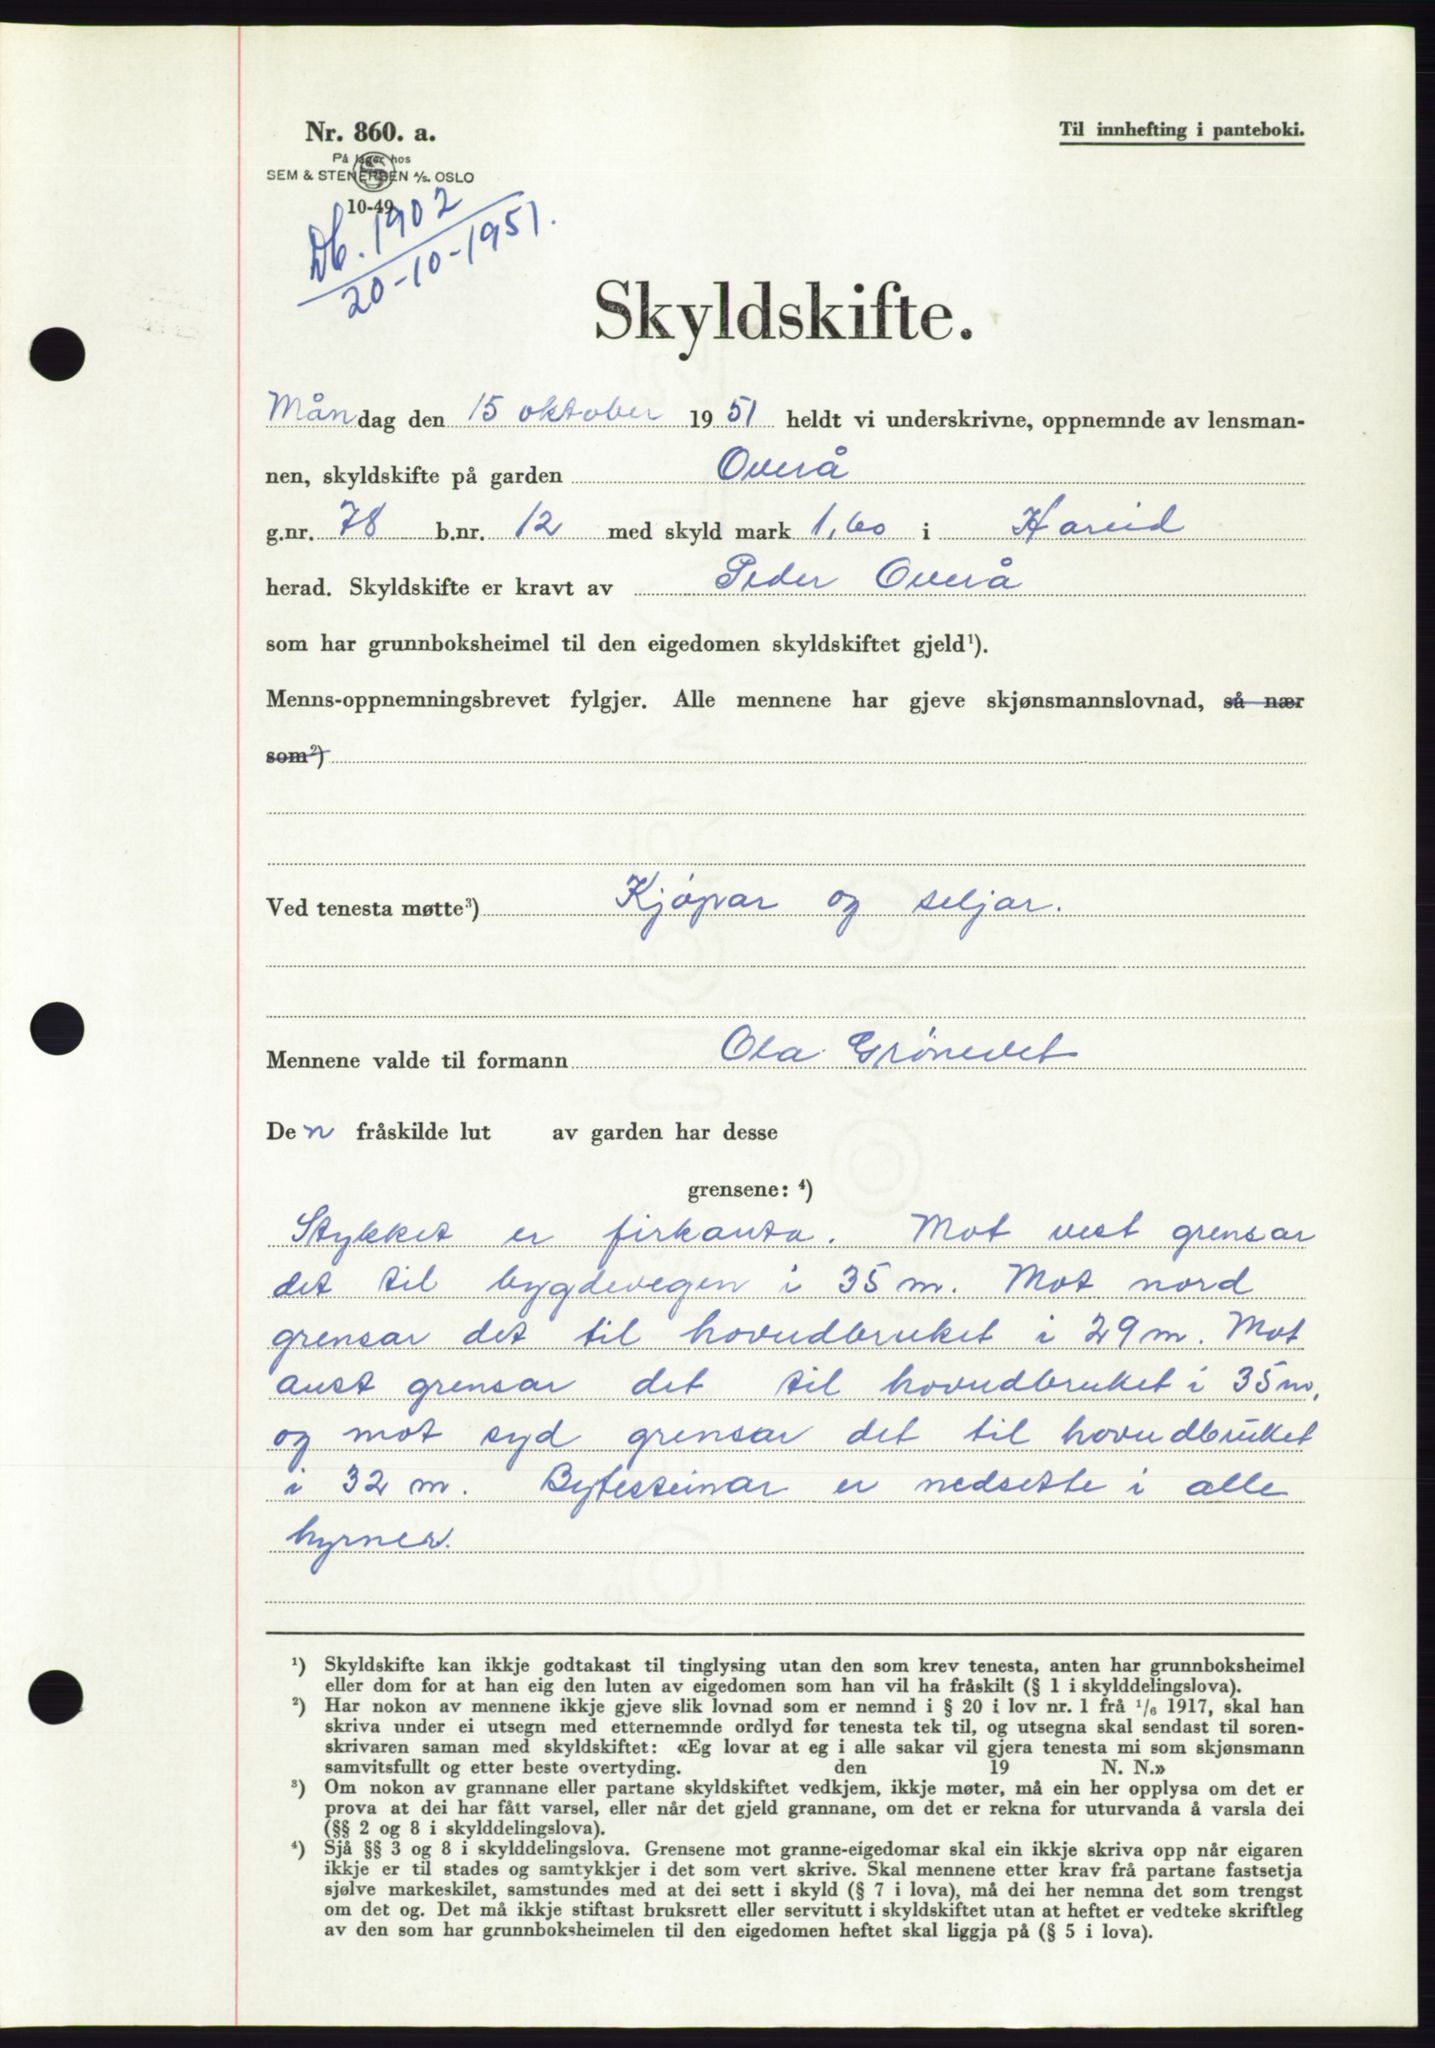 Nr. 860. a.
Til innhefting i panteboki.
På lager hos
SEM & STENERSEN A/S. OSLO
10-49
Db. 1902
20-10-1951.
Skyldskifte.
Måndag den 15 oktober 1951 heldt vi underskrivne, oppnemnde av lensman-
nen, skyldskifte på garden Overå
g.nr. 78 b.nr. 12 med skyld mark 1,60 i Hareid
herad. Skyldskifte er kravt av Peder Overå
som har grunnboksheimel til den eigedomen skyldskiftet gjeld¹).
Menns-oppnemningsbrevet fylgjer. Alle mennene har gjeve skjønsmannslovnad, så nær
som²)
Ved tenesta møtte³) Kjøpar og seljar.
Mennene valde til formann Ola Grönevet
Den fråskilde lut av garden har desse
grensene: ⁴)
Stykket er firkanta. Mot vest grensar
det til bygdevegen i 35 m. Mot nord
grensar det til hovudbruket i 29 m. Mot
aust grensar det til hovudbruket i 35 m,
og mot syd grensar det til hovudbruket
i 32 m. Bytesteinar er nedsette i alle
hyrner.
¹) Skyldskifte kan ikkje godtakast til tinglysing utan den som krev tenesta, anten har grunnboksheimel
eller dom for at han eig den luten av eigedomen som han vil ha fråskilt (§ 1 i skylddelingslova).
²) Har nokon av mennene ikkje gjeve slik lovnad som er nemnd i § 20 i lov nr. 1 frå ¹/₆ 1917, skal han
skriva under ei utsegn med etternemnde ordlyd før tenesta tek til, og utsegna skal sendast til soren-
skrivaren saman med skyldskiftet: «Eg lovar at eg i alle sakar vil gjera tenesta mi som skjønsmann
samvitsfullt og etter beste overtyding. den 19 N. N.»
³) Om nokon av grannane eller partane skyldskiftet vedkjem, ikkje møter, må ein her opplysa om det er
prova at dei har fått varsel, eller når det gjeld grannane, om det er rekna for uturvanda å varsla dei
(§§ 2 og 8 i skylddelingslova).
⁴) Sjå §§ 3 og 8 i skylddelingslova. Grensene mot granne-eigedomar skal ein ikkje skriva opp når eigaren
ikkje er til stades og samtykkjer i det som vert skrive. Skal mennene etter krav frå partane fastsetja
sjølve markeskilet, samstundes med at dei sett i skyld (§ 7 i lova), må dei her nemna det som trengst
om det og. Det må ikkje stiftast bruksrett eller servitutt i skyldskiftet utan at heftet er vedteke skriftleg
av den som har grunnboksheimelen til den eigedomen heftet skal liggja på (§ 5 i lova).